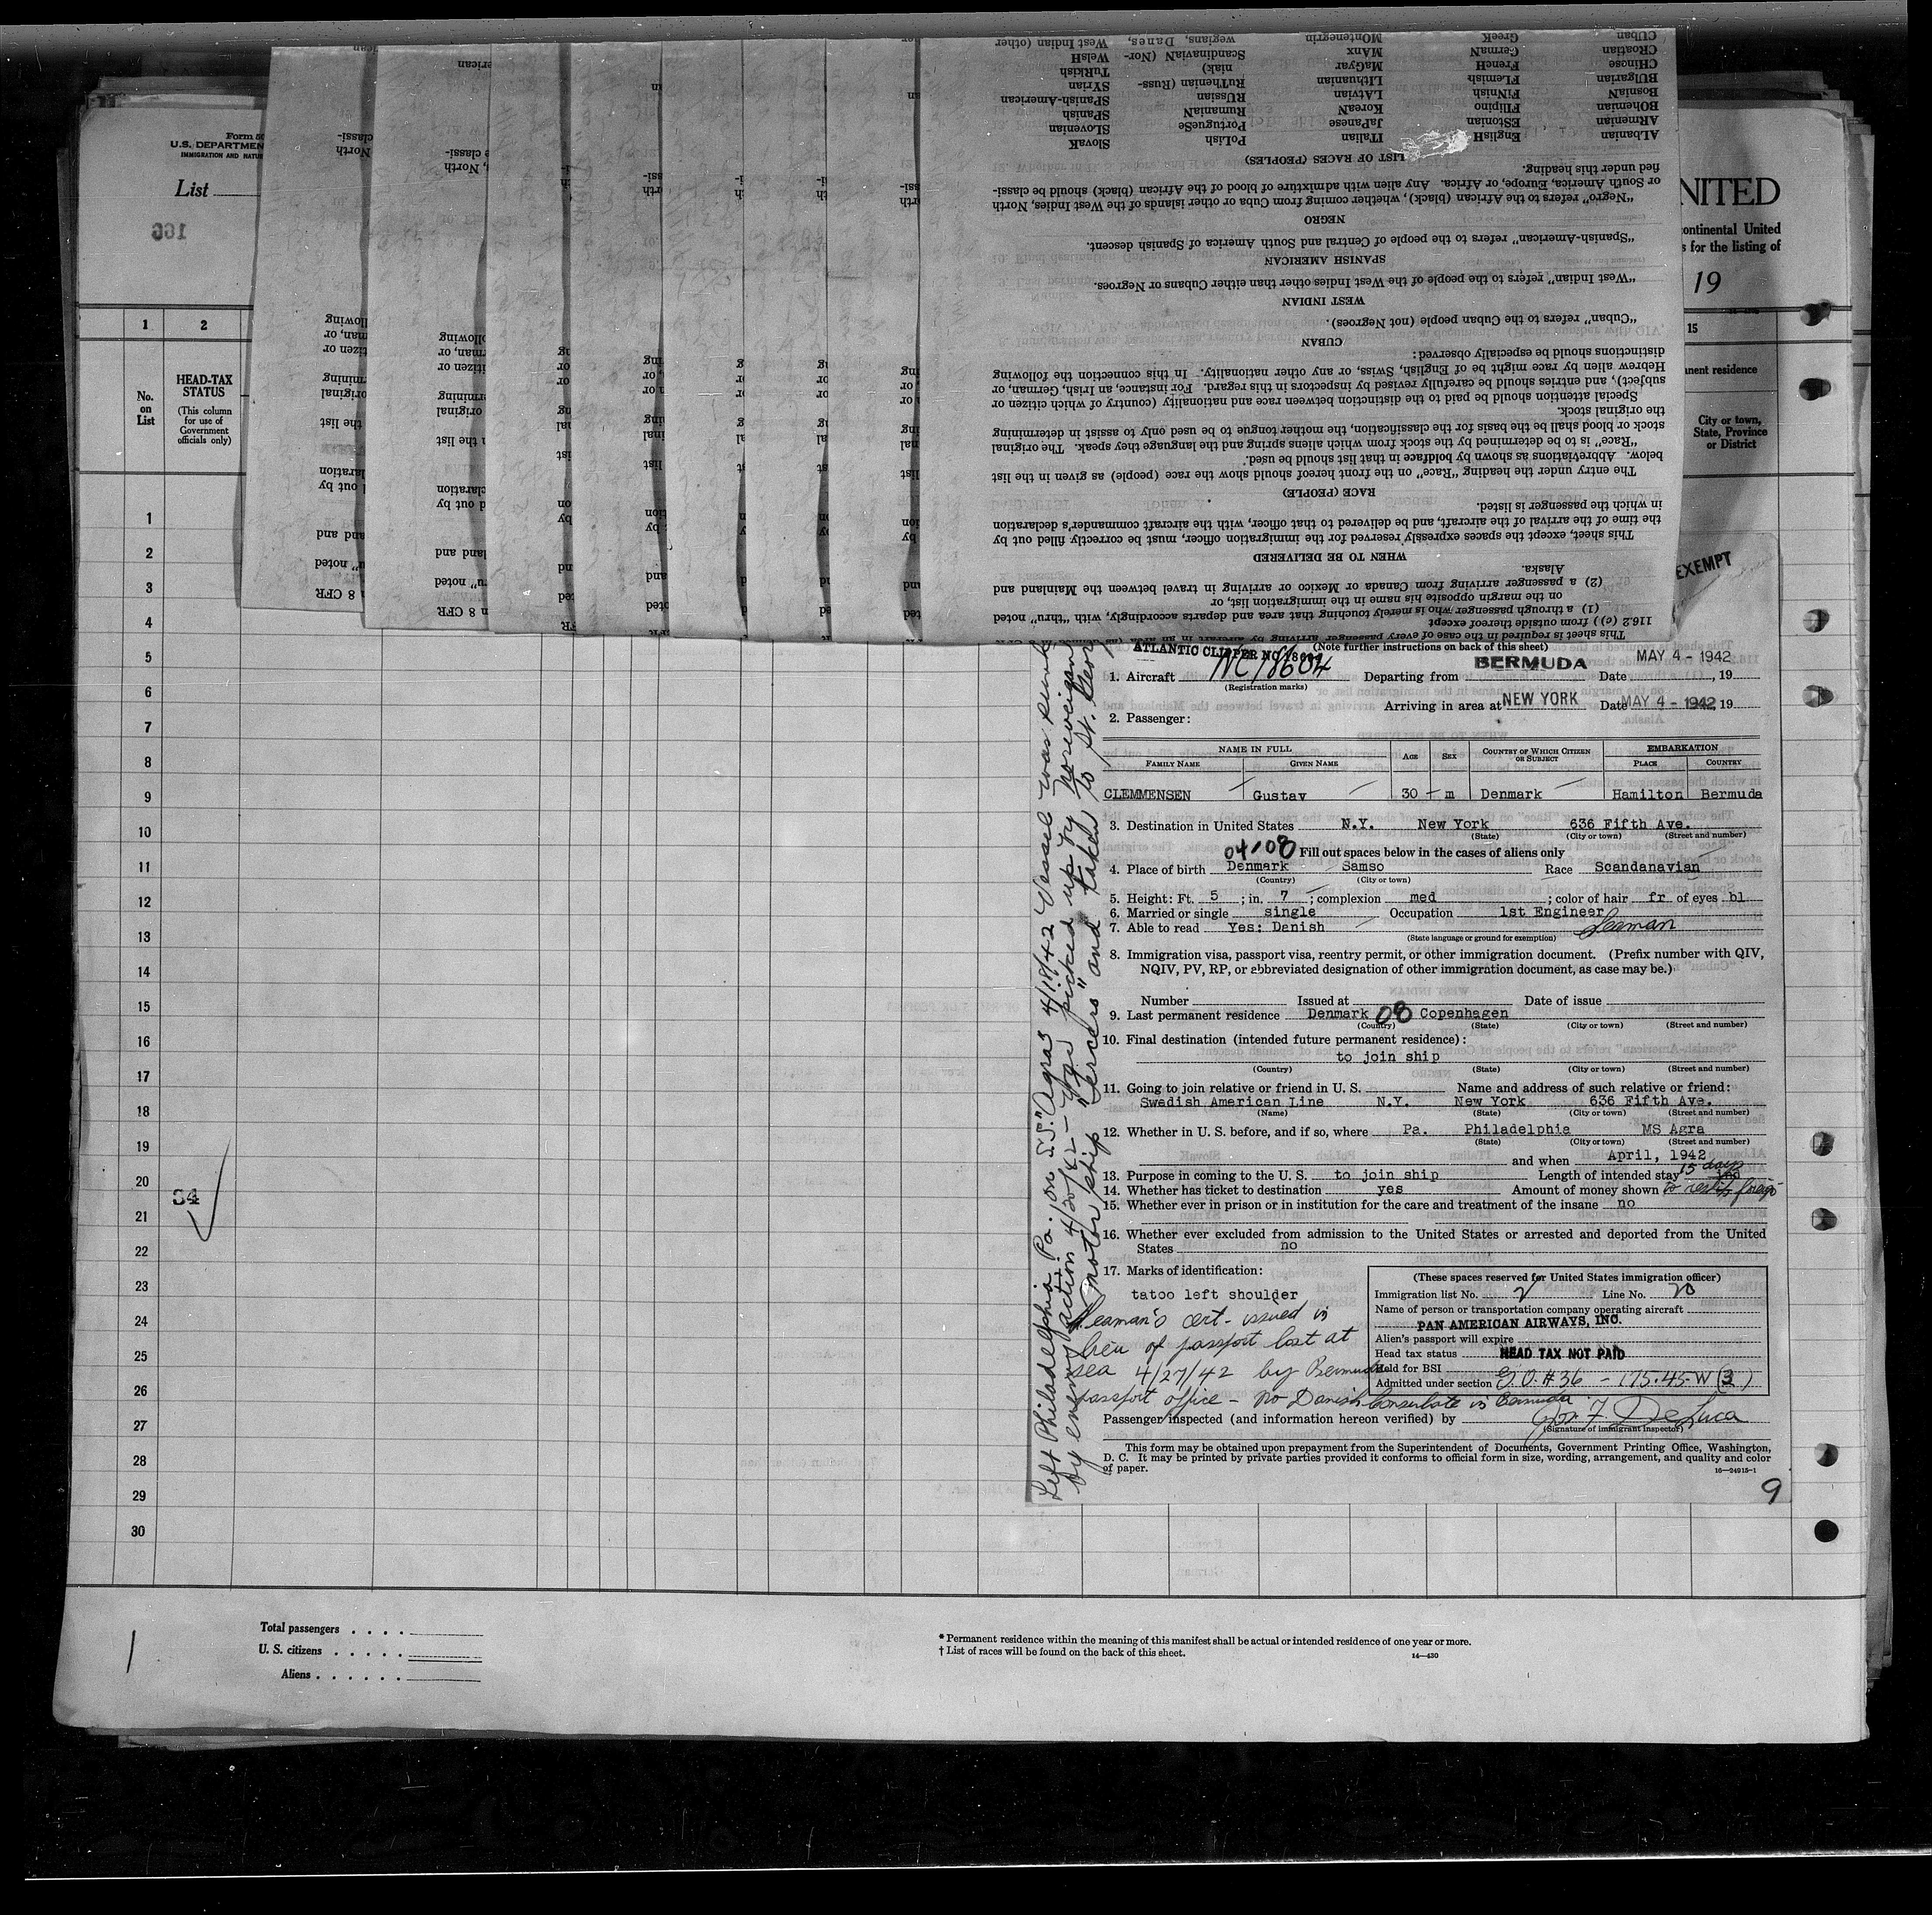 Form 50
U.S. DEPARTMEN
IMMIGRATION AND NATU
List
166
NITED
continental United
s for the listing of
19
1 2 15
No. on List
HEAD-TAX STATUS
(This column for use of Government officials only)
nent residence
City or town, State, Province or District
CUban GreeK MOntenegrin wegians, Danes, West Indian (other
CRoatian GermaN MAnx Scandinavian (Nor- WelsH
CHinese FrencH MaGyar niak) TuRkish
BUlgarian FLemish LIthuanian RuThenian (Russ- SYrian
BOsniaN FiNnish LAtvian RUssian SPanish-American
BOhemian FIlipino KoreaN RumaniaN SPanish
ARmenian EStonian JaPanese PortugueSe SLOvenian
ALbanian EnglisH ITalian PoLish SlovaK
LIST OF RACES (PEOPLES)
fied under this heading.
or South America, Europe, or Africa. Any alien with admixture of blood of the African (black) should be classi-
"Negro" refers to the African (black), whether coming from Cuba or other islands of the West Indies, North
NEGRO
"Spanish-American" refers to the people of Central and South America of Spanish descent.
SPANISH AMERICAN
"West Indian" refers to the people of the West Indies other than either Cubans or Negroes.
WEST INDIAN
"Cuban" refers to the Cuban people (not Negroes).
CUBAN
distinctions should be especially observed:
Hebrew alien by race might be of English, Swiss, or any other nationality. In this connection the following
subject), and entries should be carefully revised by inspectors in this regard. For instance, an Irish, German, or
Special attention should be paid to the distinction between race and nationality (country of which citizen or
the original stock.
stock or blood shall be the basis for the classification, the mother tongue to be used only to assist in determining
"Race" is to be determined by the stock from which aliens spring and the language they speak. The original
below. Abbreviations as shown by boldface in that list should be used.
The entry under the heading "Race" on the front hereof should show the race (people) as given in the list
RACE (PEOPLE)
in which the passenger is listed.
the time of the arrival of the aircraft, and be delivered to that officer, with the aircraft commander's declaration
This sheet, except the spaces expressly reserved for the immigration officer, must be correctly filled out by
WHEN TO BE DELIVERED
Alaska.
(2) a passenger arriving from Canada or Mexico or arriving in travel between the Mainland and
on the margin opposite his name in the immigration list, or
(1) a through passenger who is merely touching that area and departs accordingly, with "thru" noted
116.2 (c)) from outside thereof except
This sheet is required in the case of every passenger arriving by aircraft in an area
EXEMPT
(Note further instructions on back of this sheet)
ATLANTIC CLIPPER NC 18604
1. Aircraft NC18604 Departing from BERMUDA Date MAY 4 - 1942, 19
(Registration marks)
Arriving in area at NEW YORK Date MAY 4 - 1942, 19
2. Passenger:
NAME IN FULL AGE SEX COUNTRY OF WHICH CITIZEN OR SUBJECT EMBARKATION
FAMILY NAME GIVEN NAME PLACE COUNTRY
CLEMMENSEN Gustav 30 m Denmark Hamilton Bermuda
3. Destination in United States N.Y. New York 636 Fifth Ave.
(State) (City or town) (Street and number)
04-08 Fill out spaces below in the cases of aliens only
4. Place of birth Denmark Samso Race Scandanavian
(Country) (City or town)
5. Height: Ft. 5; in. 7; complexion med; color of hair fr of eyes bl
6. Married or single single Occupation 1st Engineer
7. Able to read Yes: Danish Seaman
(State language or ground for exemption)
8. Immigration visa, passport visa, reentry permit, or other immigration document. (Prefix number with QIV,
NQIV, PV, RP, or abbreviated designation of other immigration document, as case may be.)
Number Issued at Date of issue
9. Last permanent residence Denmark 08 Copenhagen
(Country) (State) (City or town) (Street and number)
10. Final destination (intended future permanent residence):
to join ship
(Country) (State) (City or town) (Street and number)
11. Going to join relative or friend in U. S. Name and address of such relative or friend:
Swedish American Line N.Y. New York 636 Fifth Ave.
(Name) (State) (City or town) (Street and number)
12. Whether in U. S. before, and if so, where Pa. Philadelphia MS Agra
(State) (City or town) (Street and number)
and when April, 1942
13. Purpose in coming to the U. S. to join ship Length of intended stay 15 days
14. Whether has ticket to destination yes Amount of money shown to reship foreign
15. Whether ever in prison or in institution for the care and treatment of the insane no
16. Whether ever excluded from admission to the United States or arrested and deported from the United
States no
17. Marks of identification:
tatoo left shoulder
Seaman's cert. issued in
lieu of passport lost at
sea 4/27/42 by Bermuda
passport office - no Danish Consulate in Bermuda
(These spaces reserved for United States immigration officer)
Immigration list No. 2 Line No. 20
Name of person or transportation company operating aircraft
PAN AMERICAN AIRWAYS, INC.
Alien's passport will expire
Head tax status HEAD TAX NOT PAID
Held for BSI
Admitted under section G.O. #36 - 175.45-W (3)
Passenger inspected (and information hereon verified) by Jos. F. DeLuca
(Signature of immigrant inspector)
This form may be obtained upon prepayment from the Superintendent of Documents, Government Printing Office, Washington,
D. C. It may be printed by private parties provided it conforms to official form in size, wording, arrangement, and quality and color
of paper.
16—24915-1
9
Left Philadelphia Pa. on S.S. "Agra" 4/18/42 Vessel was sunk
by enemy action 4/20/42 - picked up by Norwegian
motor ship and taken to St. Geor
1
2
3
4
5
6
7
8
9
10
11
12
13
14
15
16
17
18
19
20
21
22
23
24
25
26
27
28
29
30
84
Total passengers
U. S. citizens
Aliens
* Permanent residence within the meaning of this manifest shall be actual or intended residence of one year or more.
† List of races will be found on the back of this sheet.
14—430